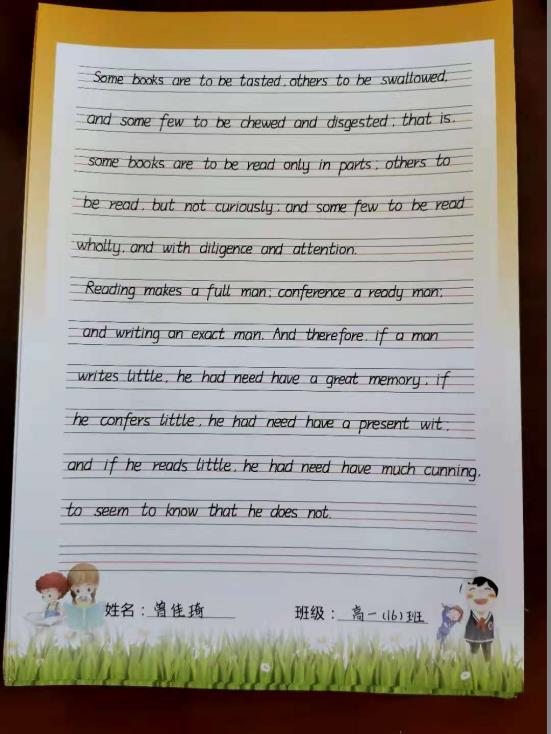 Some books are to be tasted, others to be swallowed,
and some few to be chewed and disgested; that is,
some books are to be read only in parts; others to
be read, but not curiously; and some few to be read
wholly, and with diligence and attention.
Reading makes a full man; conference a ready man;
and writing an exact man. And therefore, if a man
writes little, he had need have a great memory; if
he confers little, he had need have a present wit;
and if he reads little, he had need have much cunning,
to seem to know that he does not.
姓名：曾佳琦 班级：高一(16)班